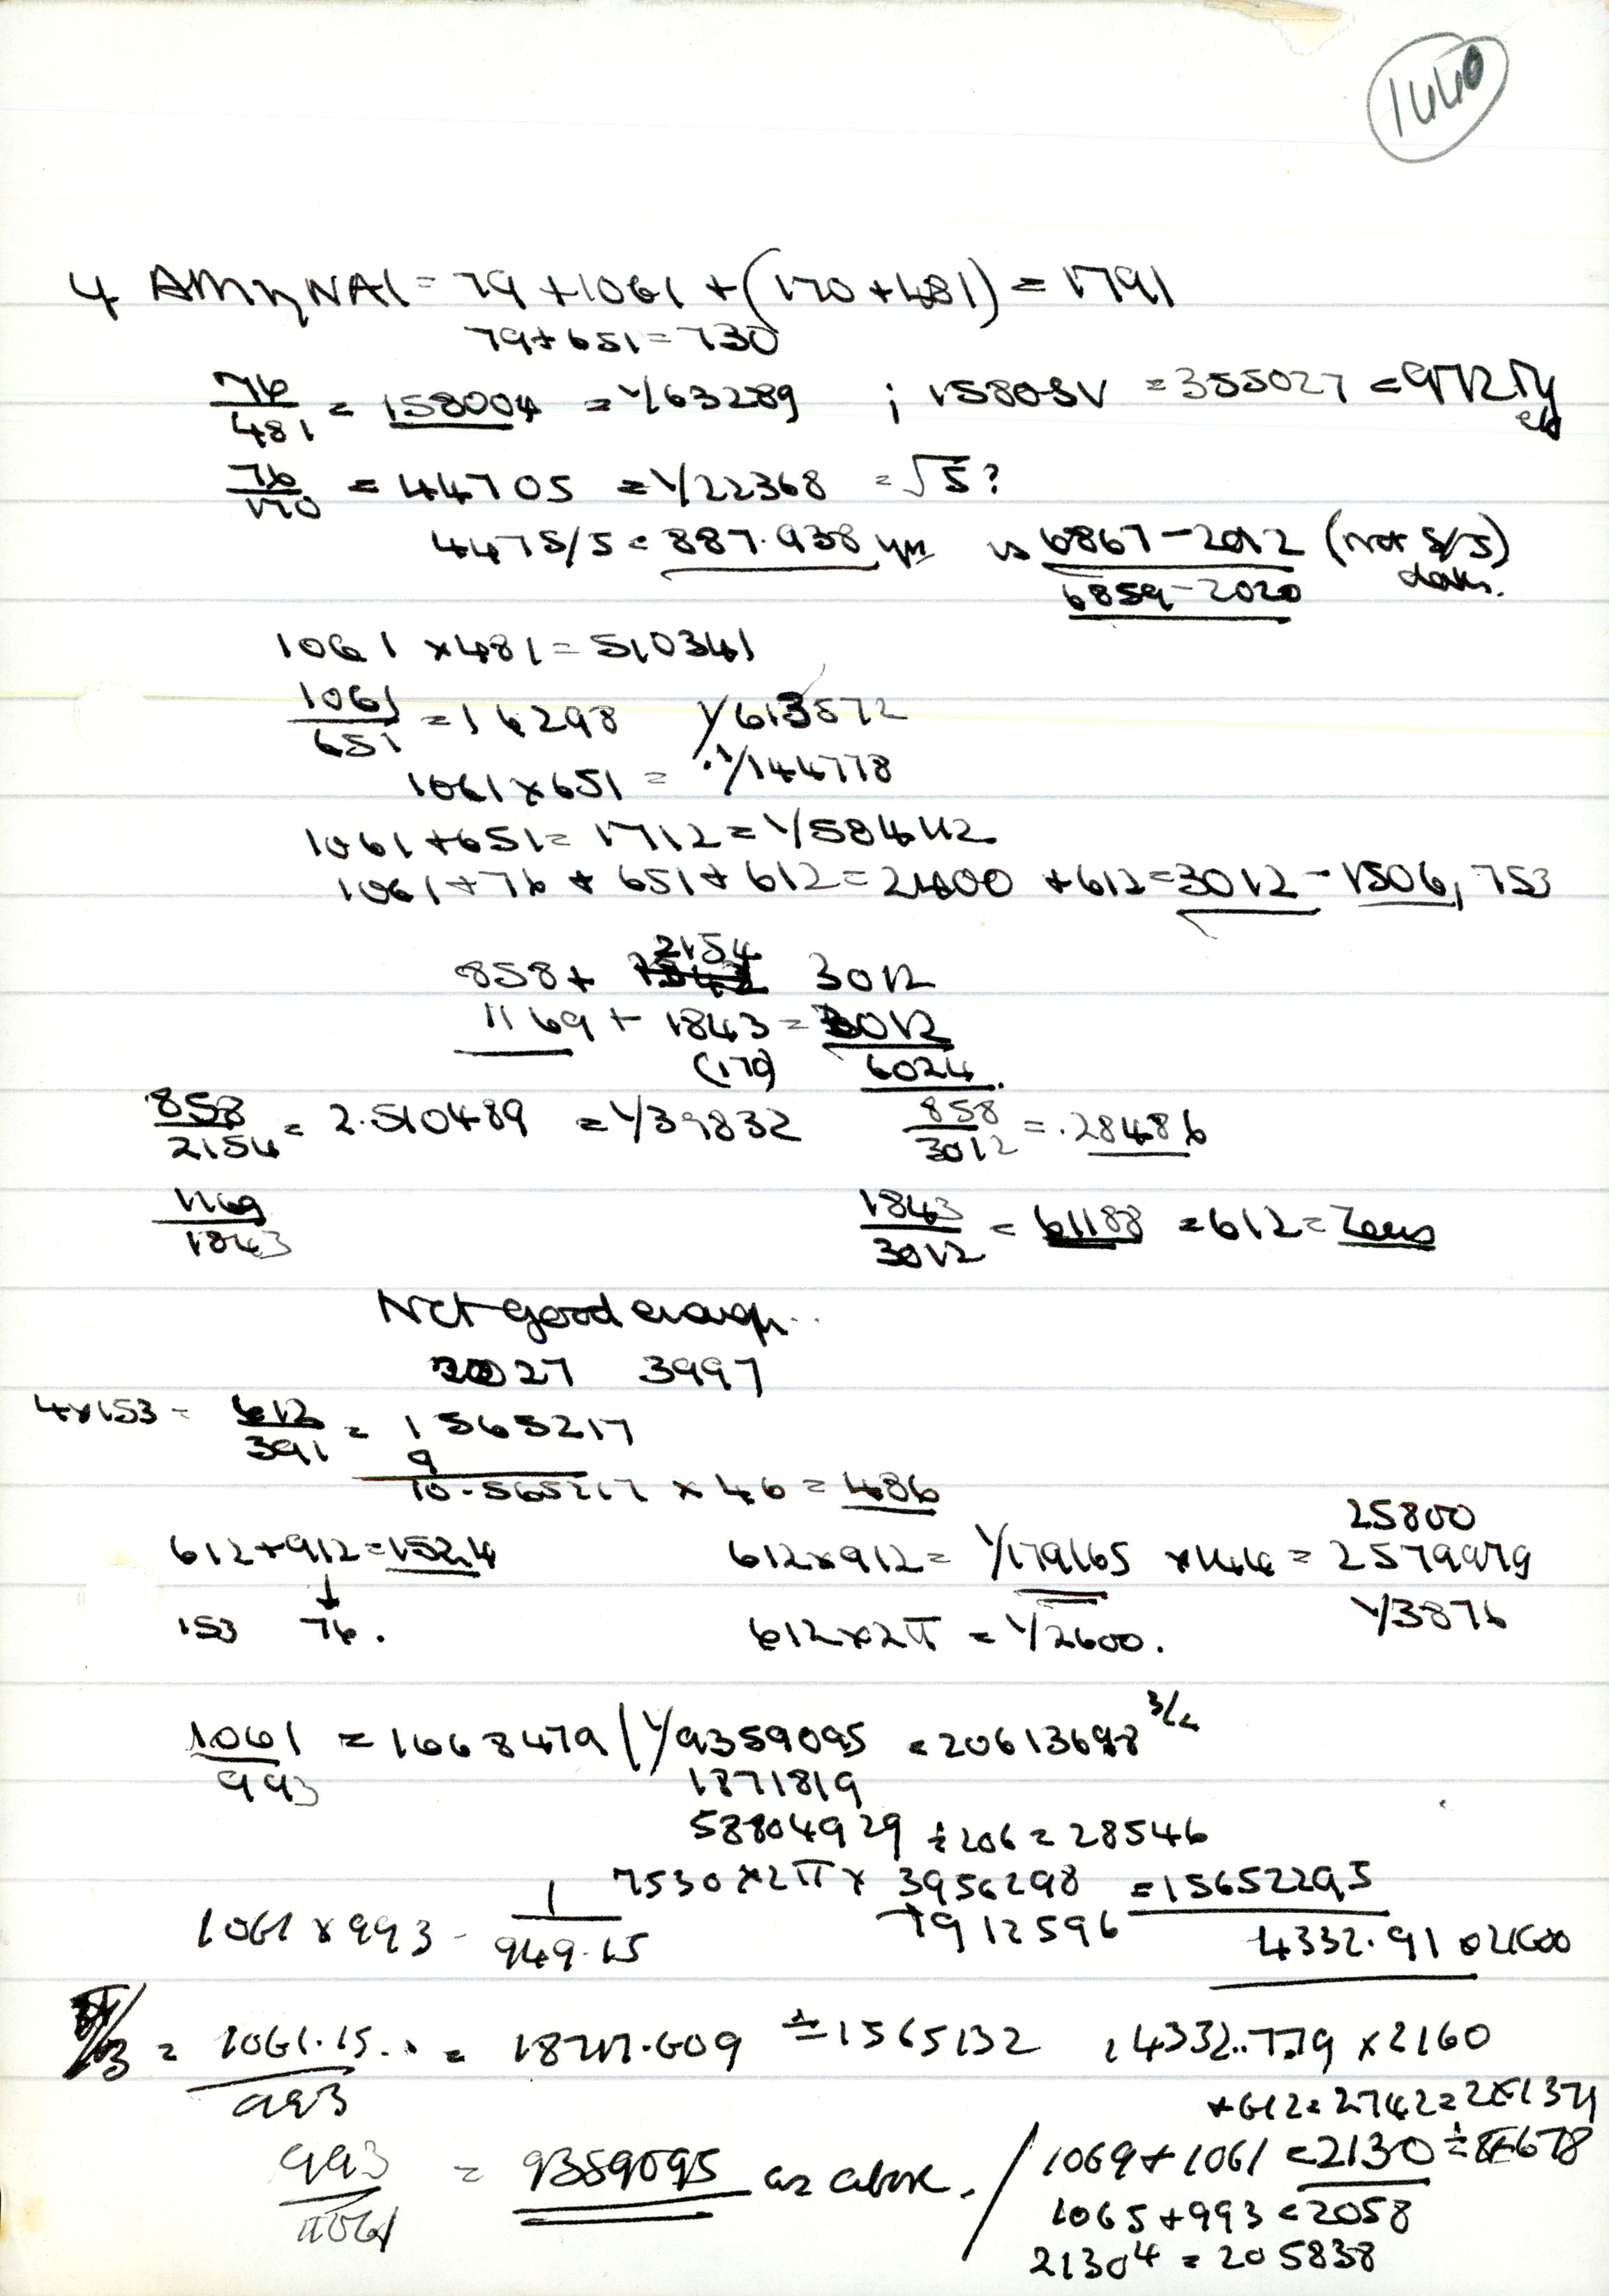 1440
4 AMYNAI = 79 + 1061 + (170 + 481) = 1791
79 + 651 = 730
76/481 = 158004 = 1/63289 ; 15805V = 355027 = 972
76/170 = 44705 = 1/22368 = √5?
4475/5 = 887.938 yrs vs 6867 - 2012 (not 5/5)
6859 - 2020
1061 × 481 = 510341
1061/651 = 16298 1/613572
1061 × 651 = .1/144778
1061 + 651 = 1712 = 1/584112
1061 + 76 + 651 + 612 = 2400 + 612 = 3012 - 1506, 753
2154
858 + 3012
1169 + 1843 = 3012
(170) 6024.
858/2154 = 2.510489 = 1/39832 858/3012 = .28486
1169/1843 1843/3012 = 61188 = 612 = Zeus
Not good enough..
2027 3997
4×153 = 612/391 = 1 565217
9
10.565217 × 46 = 486
25800
612 + 912 = 1524 612×912 = 1/179165 ×144 = 2579979
↓ 1/3876
153 76. 612×2π = 1/2600.
1061/993 = 1068479 | 1/9359095 = 20613698 3/4
1871819
58804929 ÷ 206 = 28546
7530 × 2π × 3956298 = 15652295
1061 × 993 - 1/949.15 7912596 4332.91 021600
/3 = 1061.15.. / 993 = 18717.609 ≐ 1565132 , 4332..779 × 2160
+612 = 2742 = 2×1371
993/1061 = 9359095 as above. / 1069 + 1061 = 2130 ÷ 8π = 678
1065 + 993 = 2058
2130⁴ = 205838